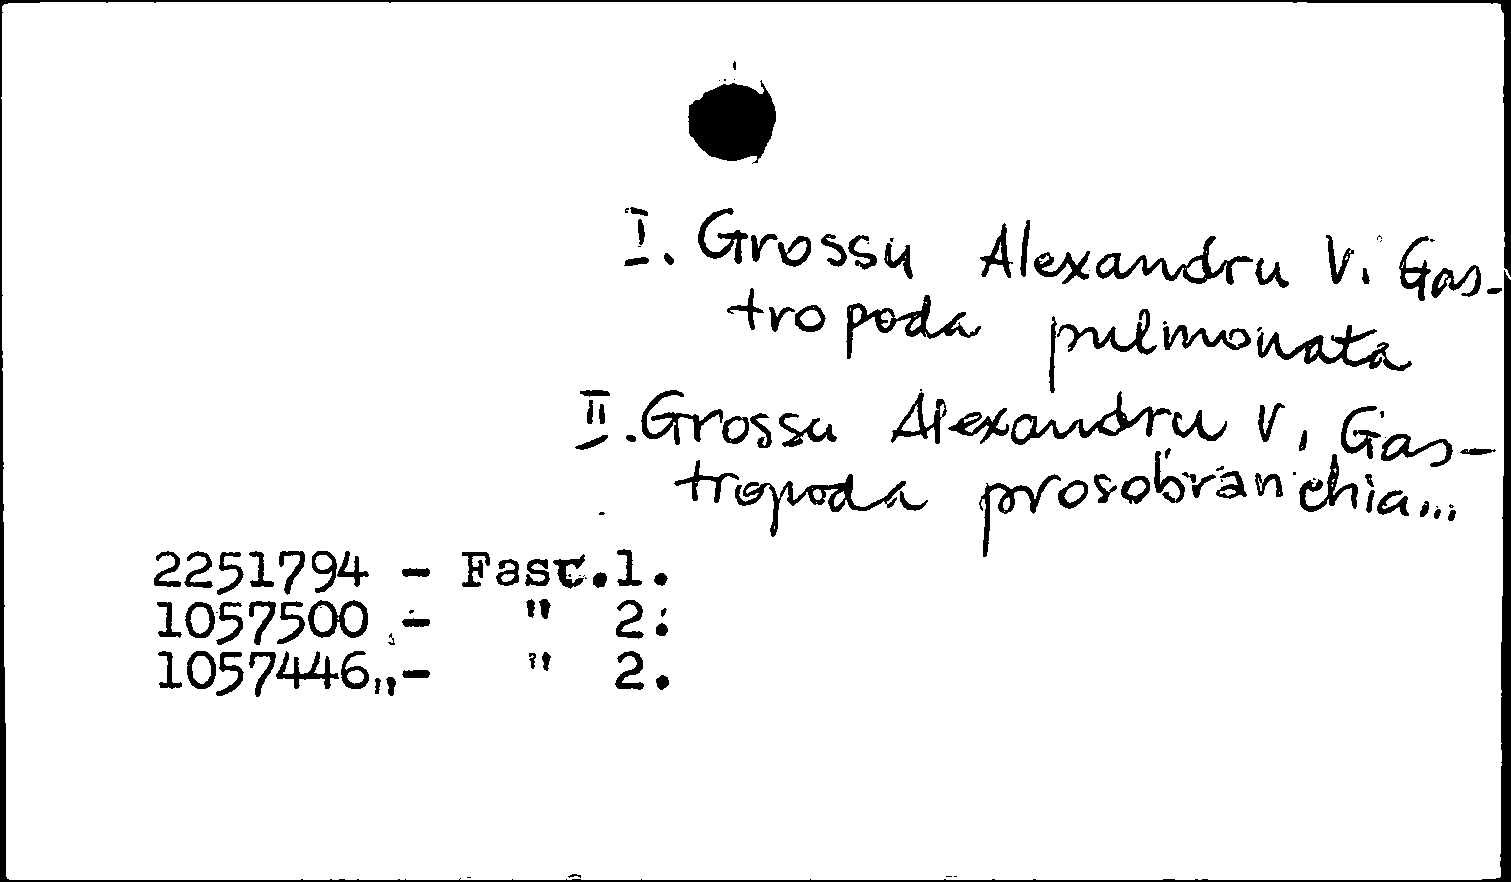 I. Grossu Alexandru V. Gas-
tropoda pulmonata
II. Grossu Alexandru V, Gas-
tropoda prosobranchia...
2251794 - Fasc.1.
1057500 - " 2.
1057446,,- " 2.